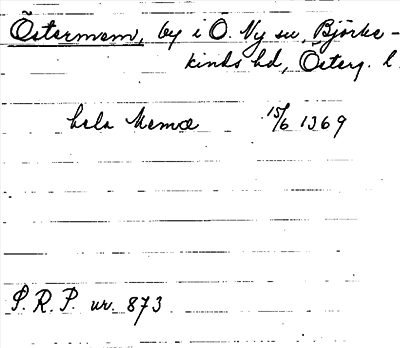 Östermem, by i Ö. Ny sn, Björke-
kinds hd, Österg. l.
hela Memæ 15/6 1369
P. R. P. nr. 873